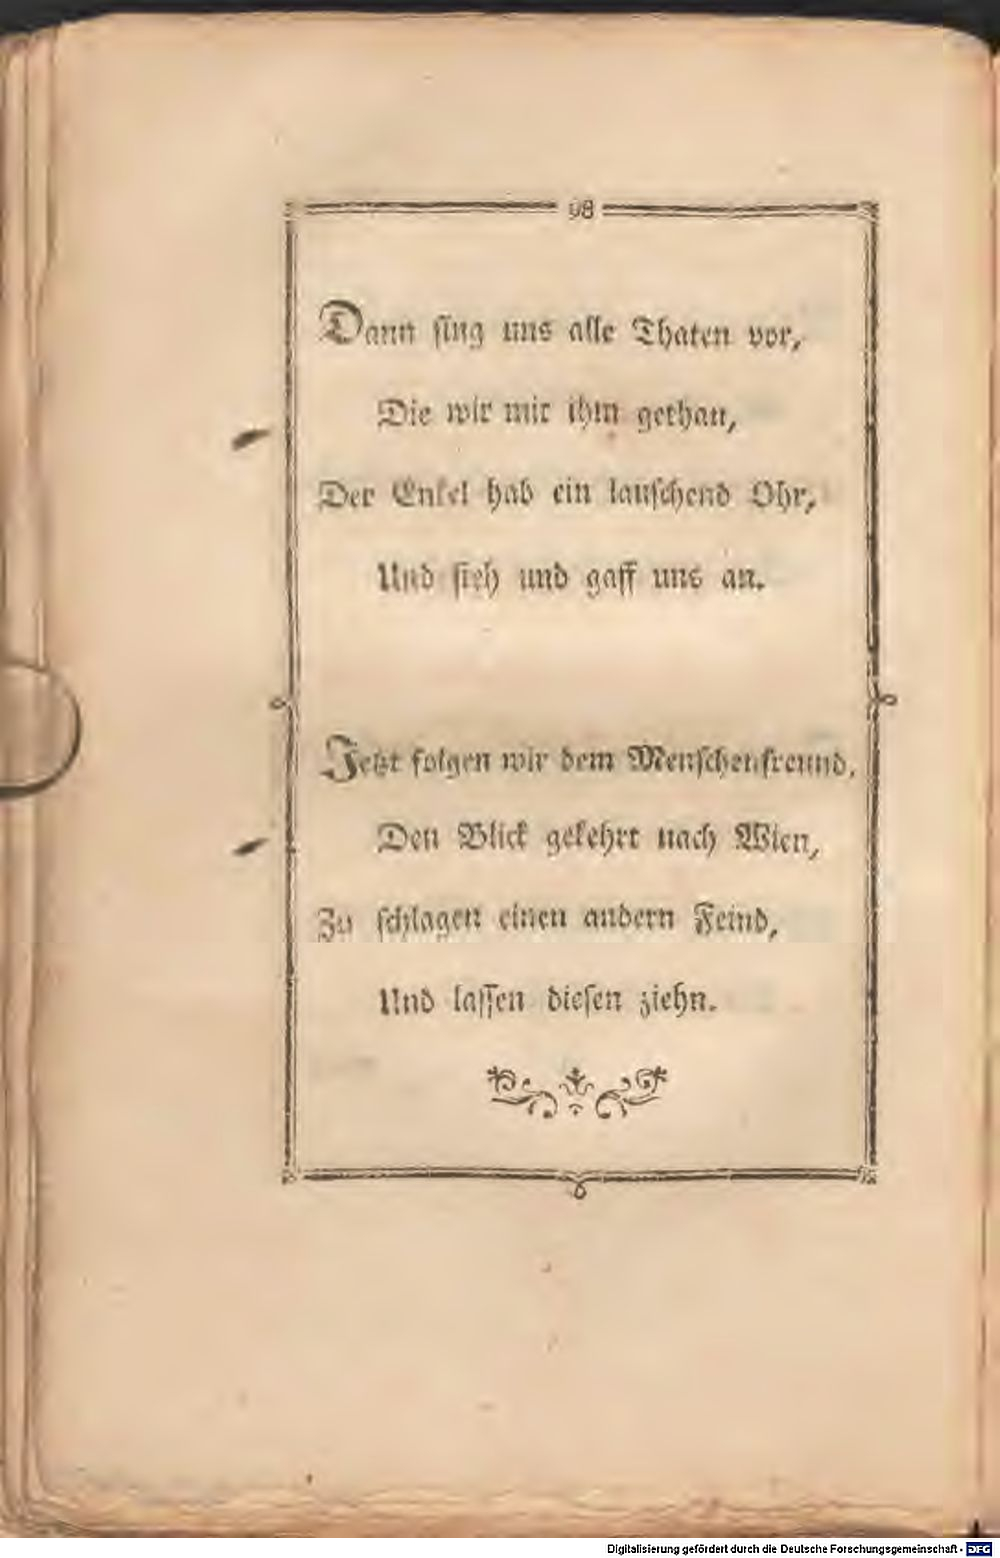 98
Dann sing uns alle Thaten vor,
Die wir mit ihm gethan,
Der Enkel hab ein lauschend Ohr,
Und steh und gaff uns an.
Jetzt folgen wir dem Menschenfreund,
Den Blick gekehrt nach Wien,
Zu schlagen einen andern Feind,
Und lassen diesen ziehn.
Digitalisierung gefördert durch die Deutsche Forschungsgemeinschaft - DFG